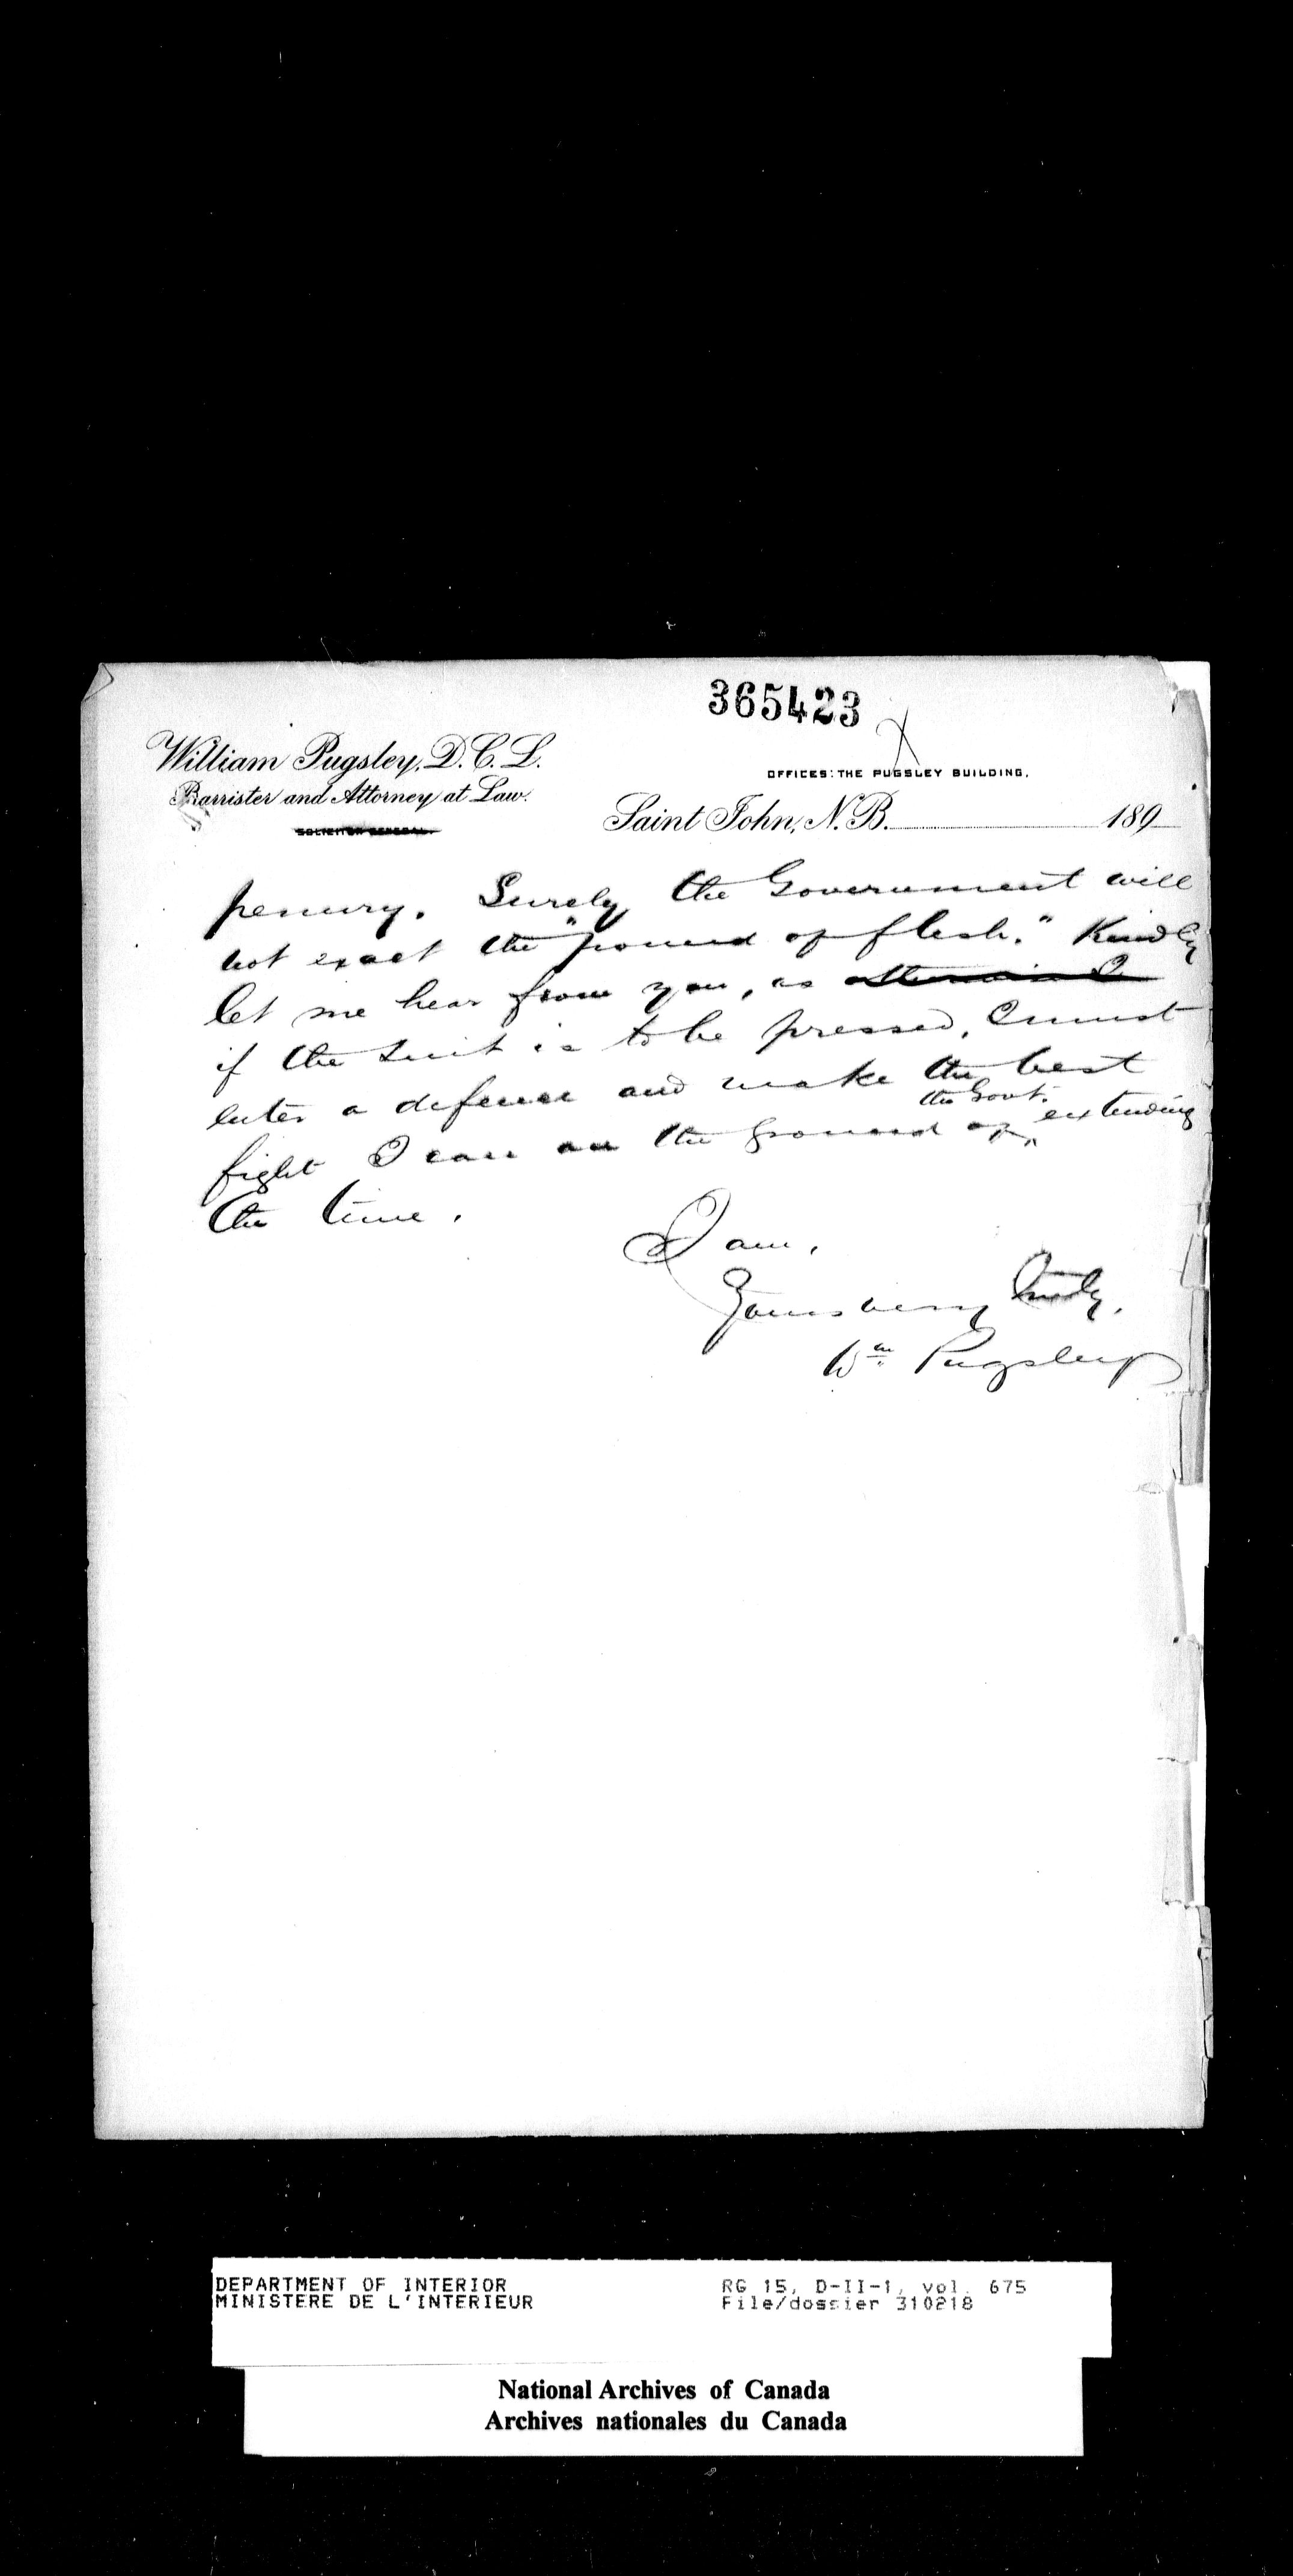 365423
William Pugsley, D.C.L.
Barrister and Attorney at Law.
SOLICITOR GENERAL.
OFFICES: THE PUGSLEY BUILDING.
Saint John, N.B. 189
penury. Surely the Government will
not exact the "pound of flesh." Kindly
let me hear from you, as otherwise I
if the suit is to be pressed, I must
enter a defence and make the best
the Govt.
fight I can on the ground of extending
the time.
I am,
Yours very truly,
Wm Pugsley
DEPARTMENT OF INTERIOR
MINISTERE DE L'INTERIEUR
RG 15, D-II-1, vol. 675
File/dossier 310218
National Archives of Canada
Archives nationales du Canada